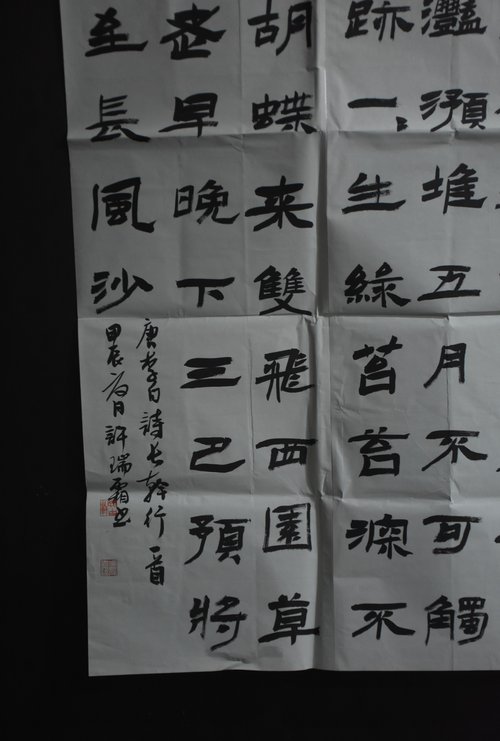 灩澦堆五月不可觸
跡一〻生綠苔苔深不
胡蝶来雙飛西園草
老早晚下三巴預將
至長風沙
唐李白詩長幹行一首
甲辰月許瑞霜書